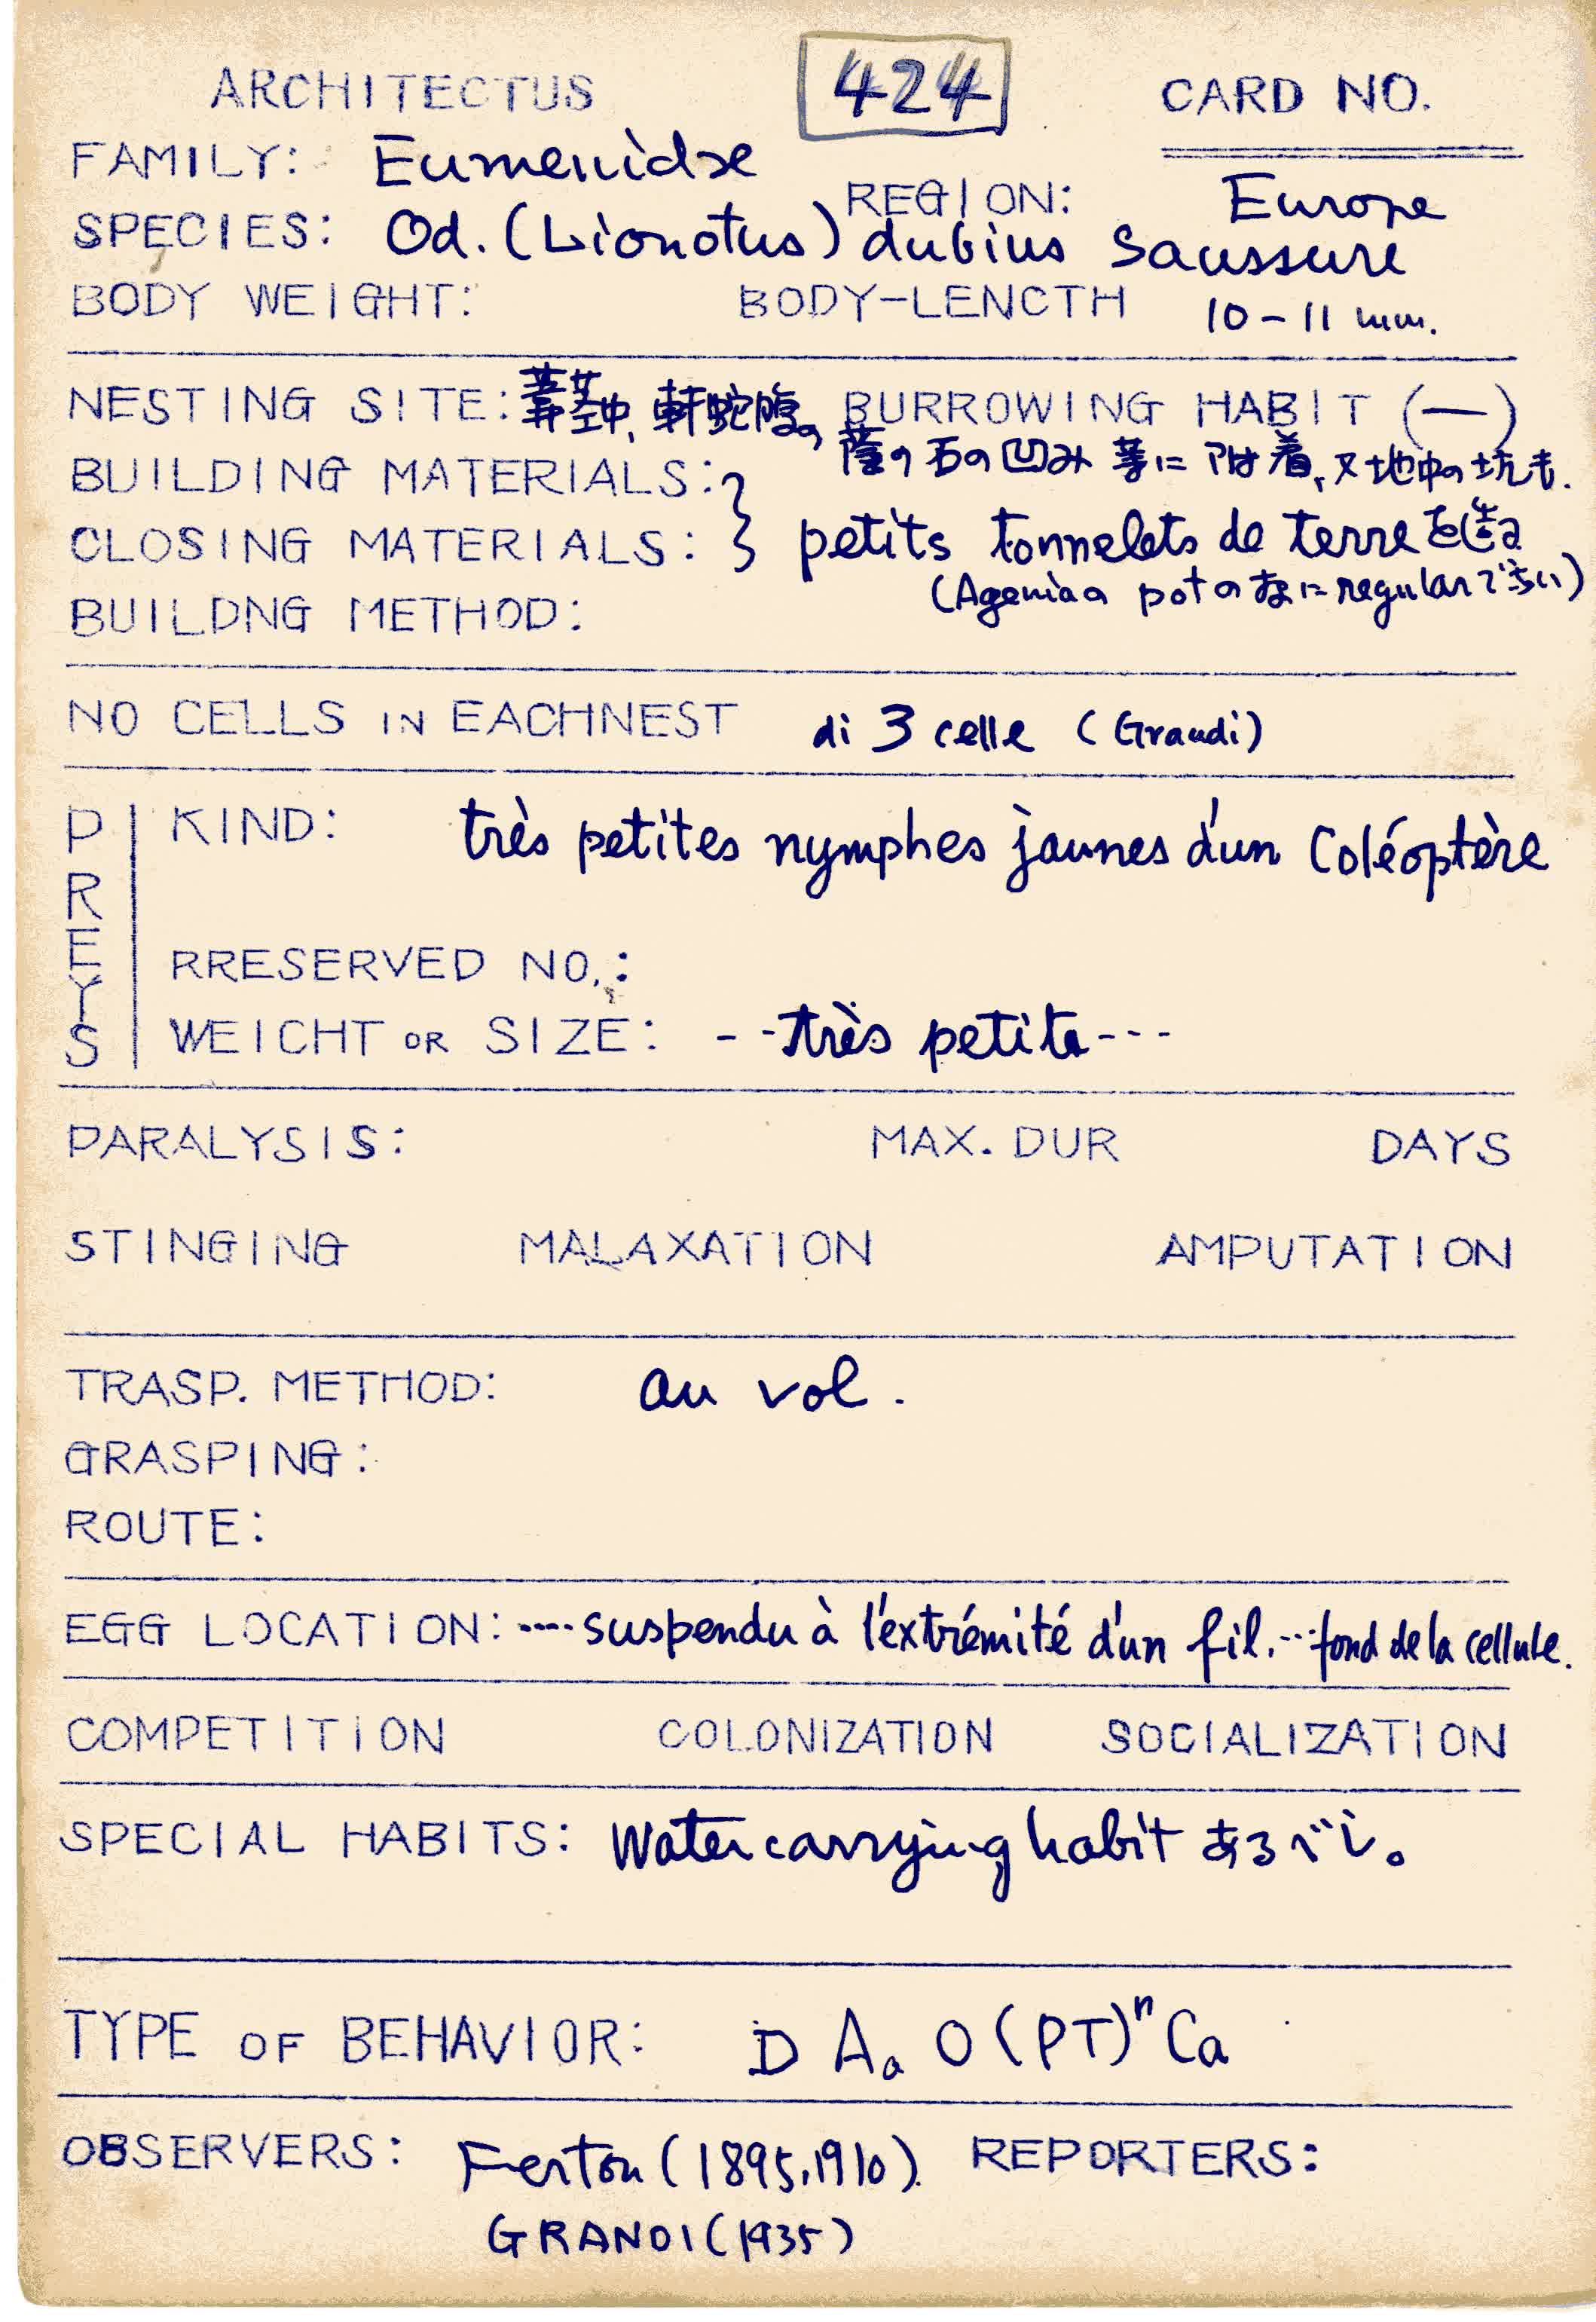 ARCHITECTUS 424 CARD NO.
FAMILY: Eumenidae REGION: Europe
SPECIES: Od. (Lionotus) dubius Saussure
BODY WEIGHT: BODY-LENCTH 10-11 mm.
NESTING SITE: 葦茎中, BURROWING HABIT (—)
蔭の石の凹み 等に附着、又地中の坑も.
BUILDING MATERIALS:
CLOSING MATERIALS: } petits tonnelets de terre を造る
(Ageniaの potの様に regularでない)
BUILDNG METHOD:
NO CELLS IN EACHNEST di 3 celle (Grandi)
PREYS
KIND: très petites nymphes jaunes d'un Coléoptère
RRESERVED NO.:
WEICHT OR SIZE: - - très petite - - -
PARALYSIS: MAX. DUR DAYS
STINGING MALAXATION AMPUTATION
TRASP. METHOD: au vol.
GRASPING:
ROUTE:
EGG LOCATION: ---- suspendu à l'extrémité d'un fil. --- fond de la cellule.
COMPETITION COLONIZATION SOCIALIZATION
SPECIAL HABITS: Water carrying habit あるべし。
TYPE OF BEHAVIOR: D Aa O (PT)ⁿ Ca
OBSERVERS: Ferton (1895, 1910). REPORTERS:
GRANDI (1935)